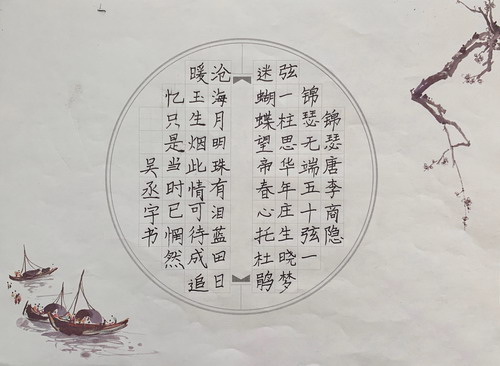 锦瑟唐李商隐
锦瑟无端五十弦一
弦一柱思华年庄生晓梦
迷蝴蝶望帝春心托杜鹃
沧海月明珠有泪蓝田日
暖玉生烟此情可待成追
忆只是当时已惘然
吴丞宇书